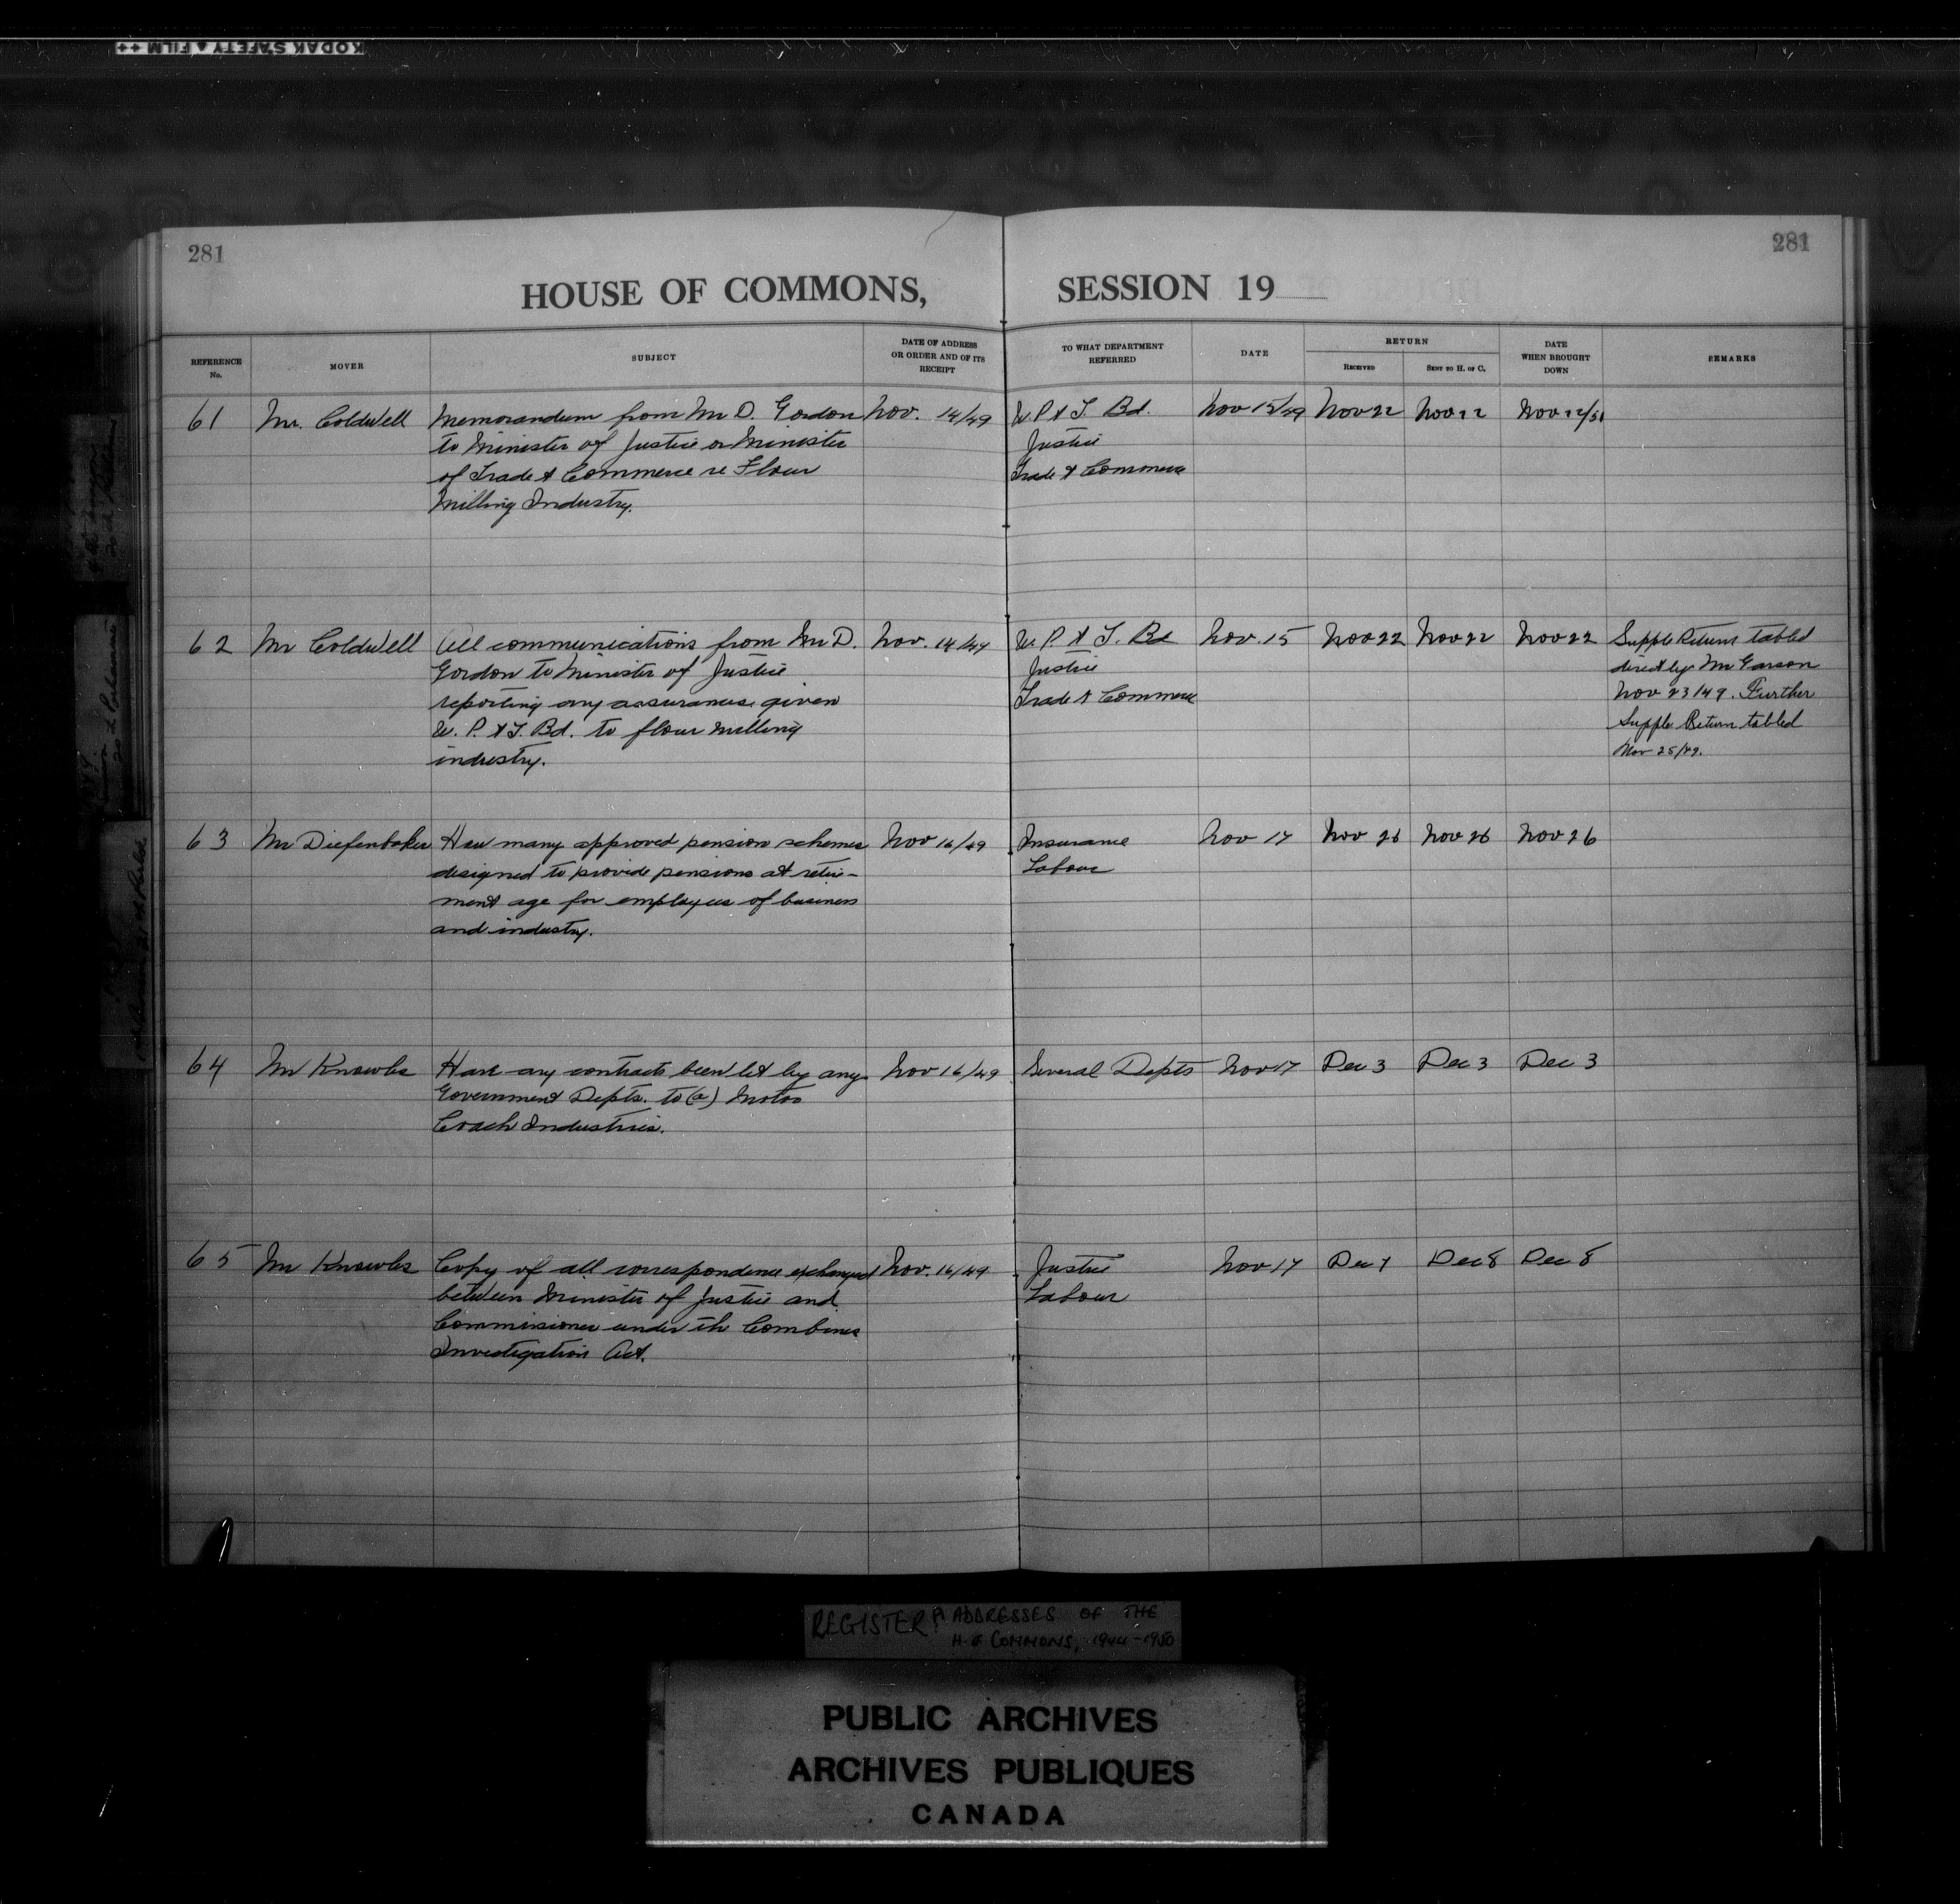 KODAK SAFETY FILM
281
281
HOUSE OF COMMONS, SESSION 19
REFERENCE No.
MOVER
SUBJECT
DATE OF ADDRESS OR ORDER AND OF ITS RECEIPT
TO WHAT DEPARTMENT REFERRED
DATE
RETURN
RECEIVED
SENT TO H. OF C.
DATE WHEN BROUGHT DOWN
REMARKS
61 Mr. Coldwell Memorandum from Mr D. Gordon Nov. 14/49 W.P.&T. Bd. Nov 15/49 Nov 22 Nov 22 Nov 22/
to Minister of Justice or Minister Justice
of Trade & Commerce re Flour Trade & Commerce
Milling Industry.
62 Mr Coldwell All communications from Mr D. Nov. 14/49 W.P. & T. Bd Nov. 15 Nov 22 Nov 22 Nov 22 Supple Return tabled
Gordon to Minister of Justice Justice directly Mr Garson
reporting any assurances given Trade & Commerce Nov 23/49. Further
W. P. & T. Bd. to flour milling Supple Return tabled
industry. Nov 25/49.
63 Mr Diefenbaker How many approved pension schemes Nov 16/49 Insurance Nov 17 Nov 26 Nov 26 Nov 26
designed to provide pensions at retire- Labour
ment age for employees of business
and industry.
64 Mr Knowles Have any contracts been let by any Nov 16/49 Several Depts Nov 17 Dec 3 Dec 3 Dec 3
Government Depts. to (a) Motor
Coach Industries.
65 Mr Knowles Copy of all correspondence exchanged Nov. 16/49 Justice Nov 17 Dec 7 Dec 8 Dec 8
between Minister of Justice and Labour
Commissioner under th Combines
Investigation Act.
REGISTER: ADDRESSES OF THE
H. of COMMONS, 1944-1950
PUBLIC ARCHIVES
ARCHIVES PUBLIQUES
CANADA